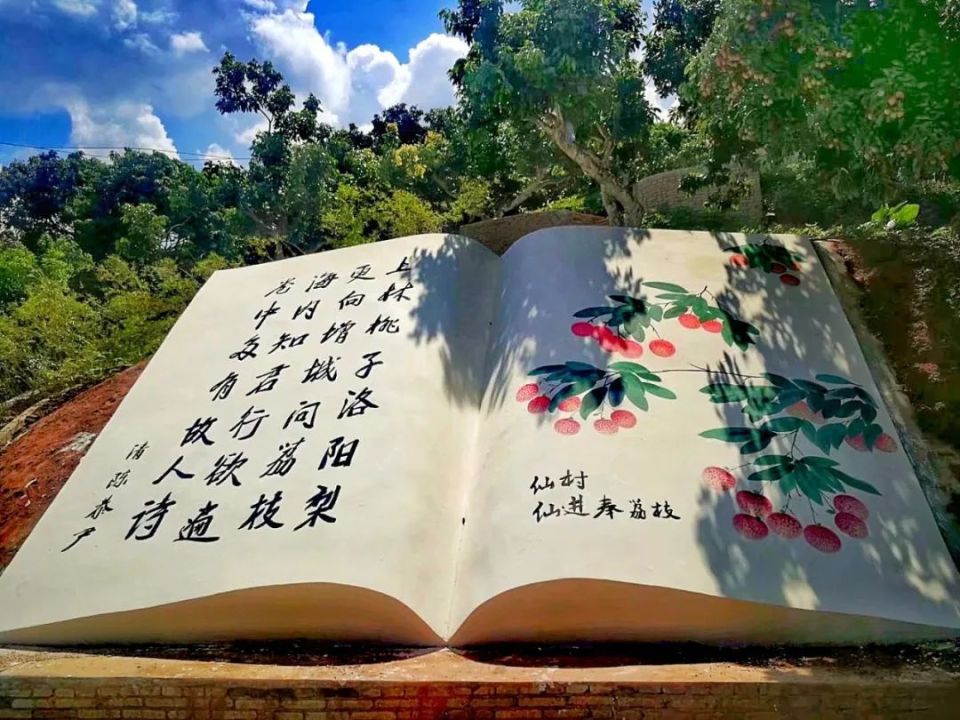 上林桃子洛阳梨
更向增城问荔枝
海内知君行欲遍
卷中多有故人诗
清陈恭尹
仙村
仙進奉荔枝